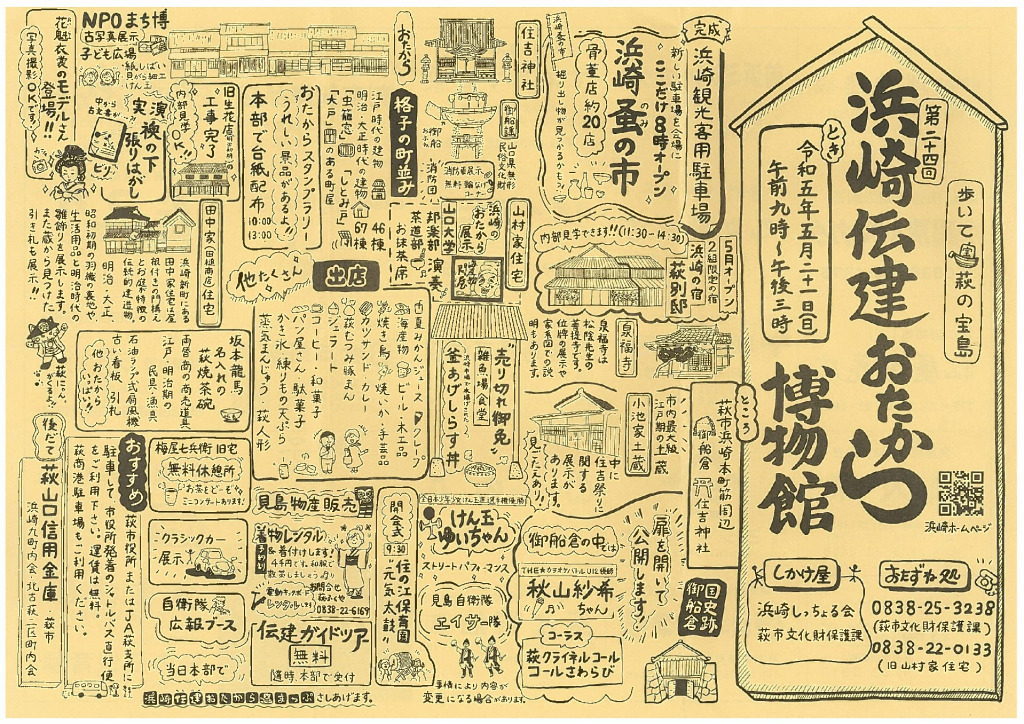 第二十四回
歩いて宝萩の宝島
浜崎伝建おたから博物館
とき
令和五年五月二十一日(日)
午前九時〜午後三時
ところ
萩市浜崎本町筋周辺
御船倉 住吉神社
浜崎ホームページ
しかけ屋
浜崎しっちょる会
萩市文化財保護課
おたずね処
0838-25-3238
(萩市文化財保護課)
0838-22-0133
(旧山村家住宅)
完成
浜崎観光客用駐車場
新しい駐車場を会場に
ここだけ8時オープン
浜崎蚤の市
のみ
骨董店約20店
掘り出し物が見つかるかも
浜崎蚤の市
内部見学できます!!(11:30-14:30)
5月オープン
2組限定の宿
浜崎の宿
萩別邸
泉福寺
松陰先生の
菩提寺です。
位牌の展示や
家系図での説
明もあります。
小池家土蔵
市内最大級
江戸期の土蔵
中に
住吉祭りに
関する
展示が
見ごたえあり!!
国史跡
御船倉
扉を開いて
公開します!
御船倉の中では
THE★カラオケバトルU12優勝
秋山紗希
ちゃん
コーラス
萩クライネルコール
コールさわらび
住吉神社
おたから
御船謡
山口県無形
民俗文化財
御船
消防車展示
無料輪なげ
コーナー
消防団
山村家住宅
浜崎の
おたから
展示
山口大学
邦楽部 演奏
茶道部
お抹茶席
格子の町並み
江戸時代の建物 46棟
明治・大正時代の建物 67棟
「虫籠窓」「しとみ戸」
「大戸」のある町家
おたからスタンプラリー
うれしい景品があるよ!!
本部で台紙配布
10:00
13:00
NPOまち博
古写真展示
子ども広場
紙しばい
けん玉
花魁衣装のモデルさん
登場!!
写真撮影OKです!
旧生花店
工事完了
内部見学OK!!
実演
襖の下
張りはがし
中から
古文書が
ビリ
田中家住宅
浜崎新町にある
田中家住宅は屋
根付きの門構え
とお庭が特徴の
伝統的建造物。
明治・大正、
昭和初期の羽織の裏地や
生活用品と明治時代の
雛飾りを展示します。
また蔵から見つけた
引き札も展示!!
坂本龍馬
名入れの
萩焼茶碗
両替商の商売道具
江戸・明治期の
民具・漁具
石油ランプ式扇風機
古い看板、引札
他、おたから
いっぱい!!
他たくさん
出店
夏みかんジュース クレープ
海産物 ビール・木工品
焼き鳥 焼いか・手芸品
カツサンド カレー
萩むつみ豚まん
ジェラート
コーヒー・和菓子
パン屋さん 駄菓子
かき氷 練りもの天ぷら
蒸気まんじゅう・萩人形
"売り切れ御免"
雑魚場食堂
釜あげしらす丼
全日本少年少女けん玉道選手権優勝
けん玉
ゆいちゃん
ストリートパフォーマンス
見島自衛隊
エイサー隊
開会式
9:30
住の江保育園
"元気太鼓"
見島物産販売
着物レンタル
&着付けします!
お問合せ
0838-22-6169
「伝建ガイドリア」
無料
随時、本部で受付
クラシックカー
展示
自衛隊
広報ブース
当日本部で
梅屋七兵衛旧宅
無料休憩所
お茶をどーぞ
ミニコンサートあります!
おすすめ
萩市役所またはJA萩支所に
駐車して、市役所発着のシャトルバス直行便
をご利用下さい。運賃は無料。
萩商港駐車場もご利用ください。
後だて
萩山口信用金庫 萩市
浜崎九町内会 北古萩一区町内会
浜崎伝建おたから惣まっぷさしあげます。
事情により内容が
変更になる場合があります。